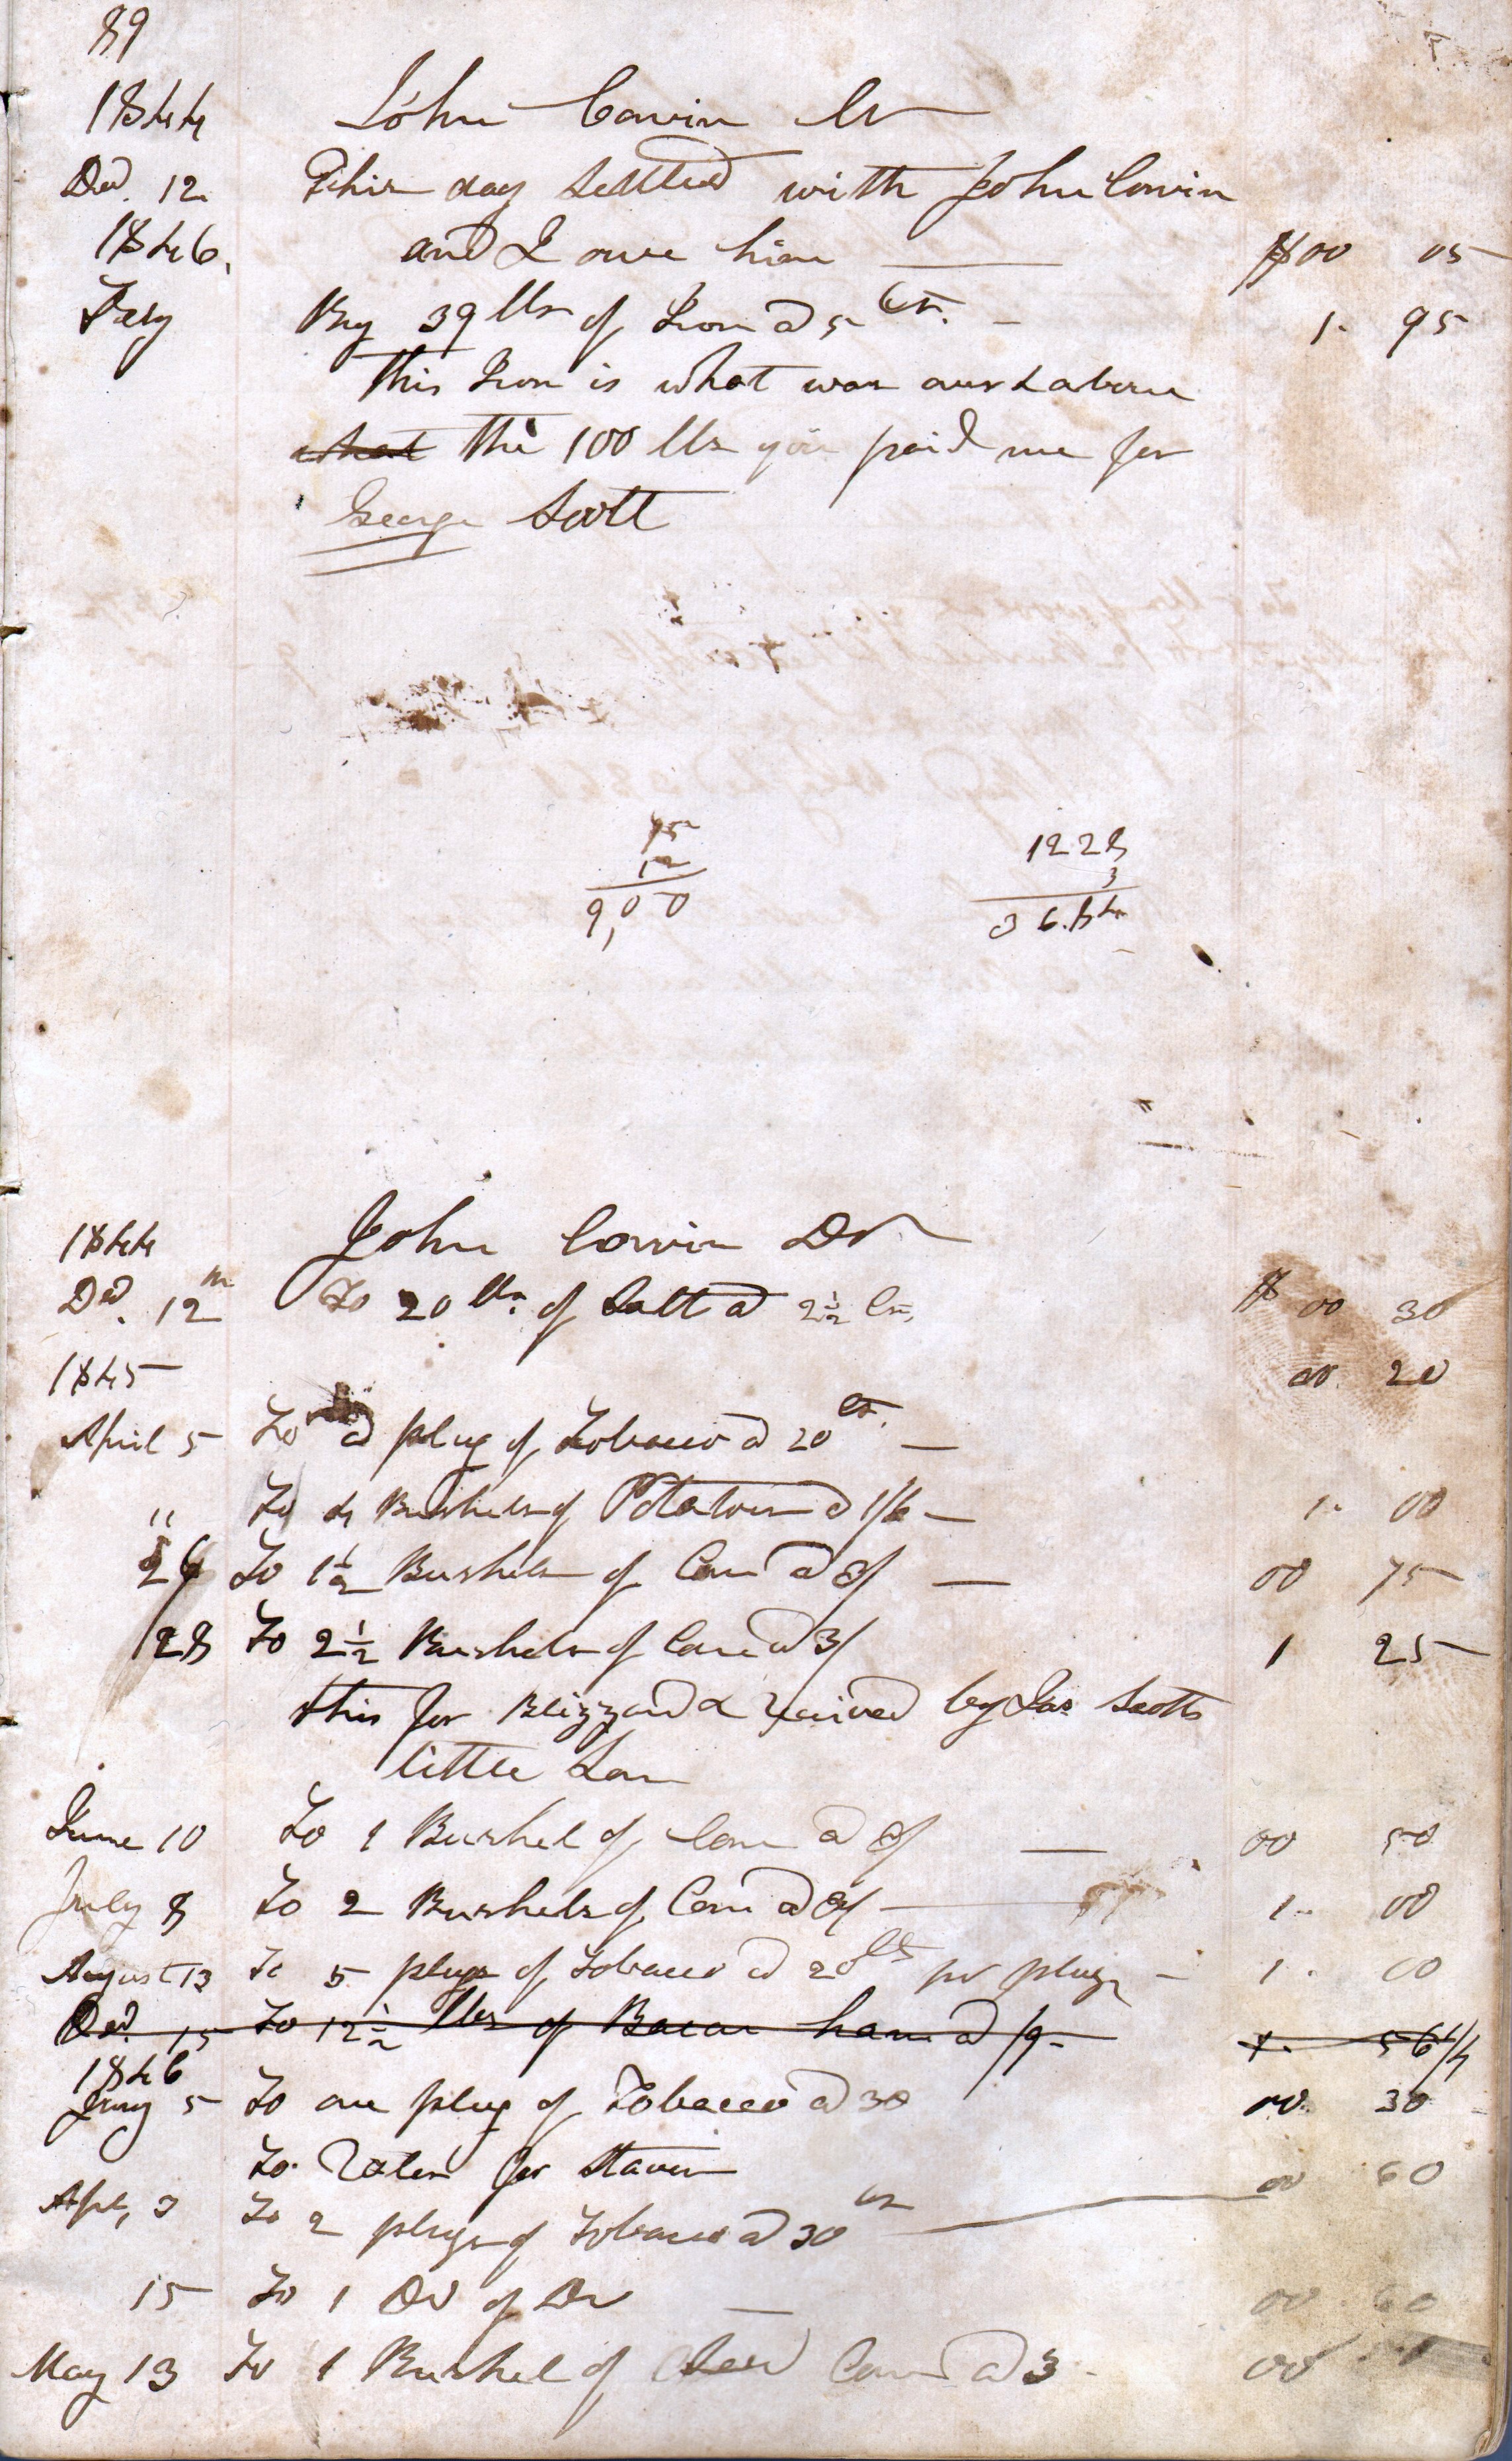 89
1844 John Cowin Cr
Decr. 12 This day settled with John Cowin
1846. and I owe him — $00 05
Feby By 39 lbs of Iron @ 5 Cts. - 1. 95
This Iron is what was over & above
what the 100 lbs you paid me for
George Scott
75 1228
12 3
9,00 36.84
1844 John Cowin Dr
Decr. 12th To 20 lbs. of Salt @ 2½ Cts, $ 00 30
1845 00. 20
April 5 To a plug of Tobacco @ 20 cts. —
" To 4 Bushels of Potatoes @ 1/6 — 1. 00
26 To 1½ Bushels of Corn @ 3/ — 00 75
28 To 2½ Bushels of Corn @ 3/ 1 25
this for Blizzard & received by Jas Scotts
little Son
June 10 To 1 Bushel of Corn @ 3/ — 00 50
July 8 To 2 Bushels of Corn @ 3/ — 1.. 00
August 13 To 5 plugs of Tobacco @ 20 cts pr plug - 1. 00
Decr. 15 To 12½ lbs of Bacon ham @ /9 - 1. 56¼
1846
Jany 5 To one plug of Tobacco @ 30 00.. 30
To for Staves
Apl, 3 To 2 plugs of Tobacco @ 30 cts — 00 60
15 To 1 Do of Do — 00 60
May 13 To 1 Bushel of Seed Corn @ 3 - 00 50